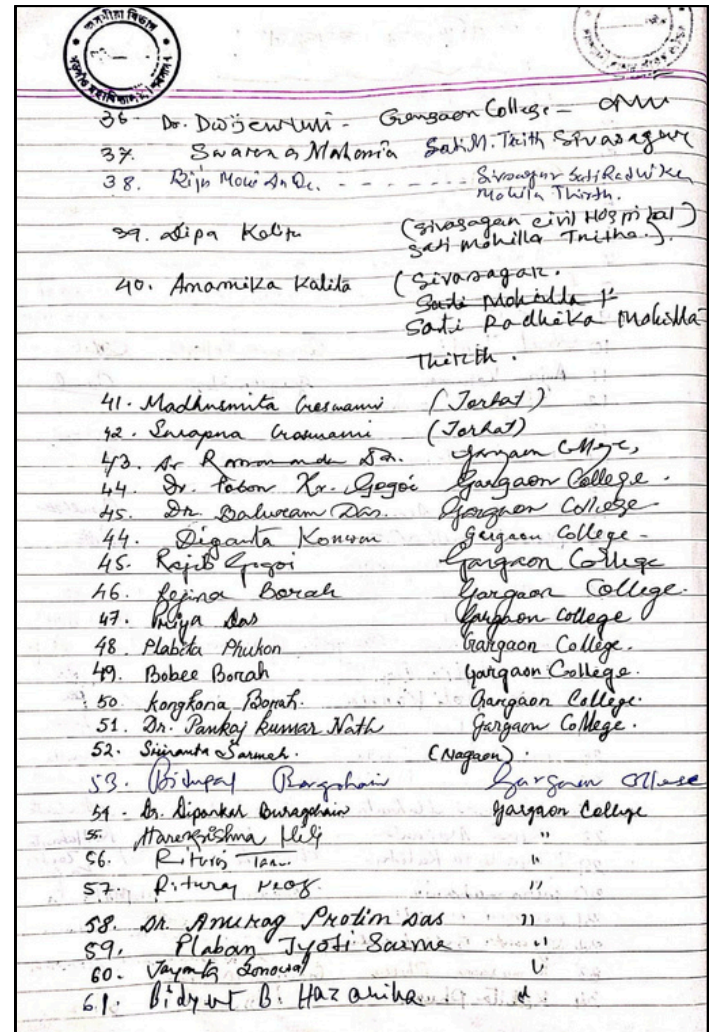 অসমীয়া বিভাগ
36. Dr. - Gargaon College -
37. Swarna Mohonia Sati M. Tirth Sivasagar
38. Riju Moni - - - - - - Sivasagar Sati Radhika
Mohila Thirth.
39. Dipa Kalita (Sivasagar civil Hospital)
Sati Mohilla Tritha.).
40. Anamika Kalita (Sivasagar.
Sadi Mohilla
Sati Radhika Mohilla
Thirth.
41. Madhusmita Goswami (Jorhat)
42. Swapna Goswami (Jorhat)
43. Dr Ramananda Das. Gargaon College,
44. Dr. Pobon Kr. Gogoi Gargaon College.
45. Dr. Baluram Das. Gargaon College
44. Diganta Konwar Gargaon College -
45. Rajib Gogoi Gargaon College
46. Regina Borah Gargaon College.
47. Priya Das Gargaon College
48. Plabita Phukon Gargaon College.
49. Bobee Borah Gargaon College.
50. Kongkona Borah. Gargaon College.
51. Dr. Pankaj Kumar Nath Gargaon College.
52. Sarmah. (Nagaon).
53. Bidupal Borgohain Gargaon College
54. Dr. Dipankar Buragohain Gargaon College
55. Harekrishna "
56. Rituraj "
57. Rituraj Neog. "
58. Dr. Anurag Protim Das "
59. Plaban Jyoti "
60. Jayanta Sonowal "
61. Bidyut B. Hazarika "